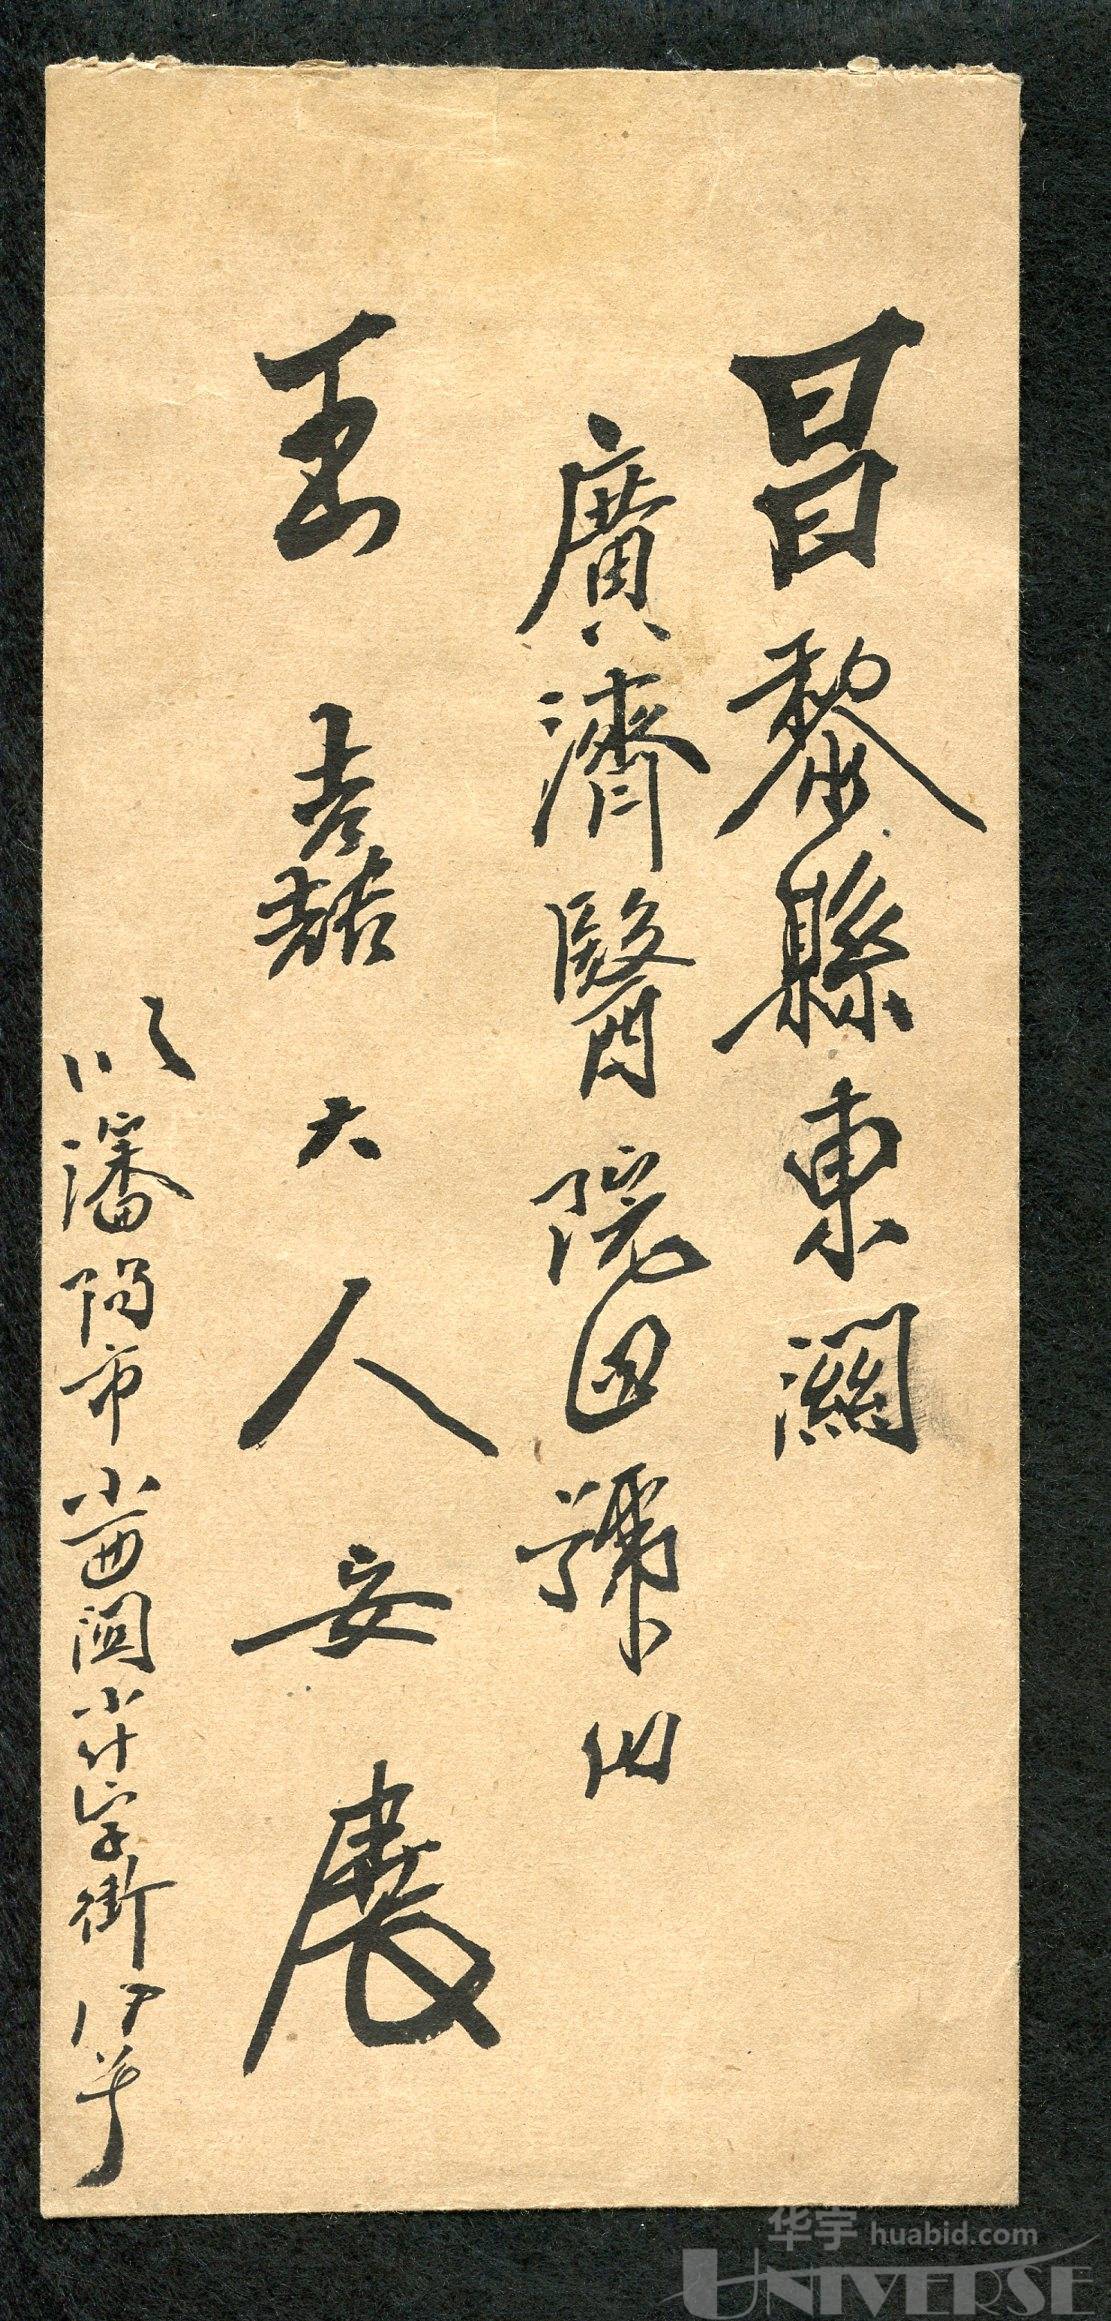 昌黎縣東關
廣濟醫院四號
王嚞大人安展
瀋陽市小西關小什字街
华宇 huabid.com
UNIVERSE